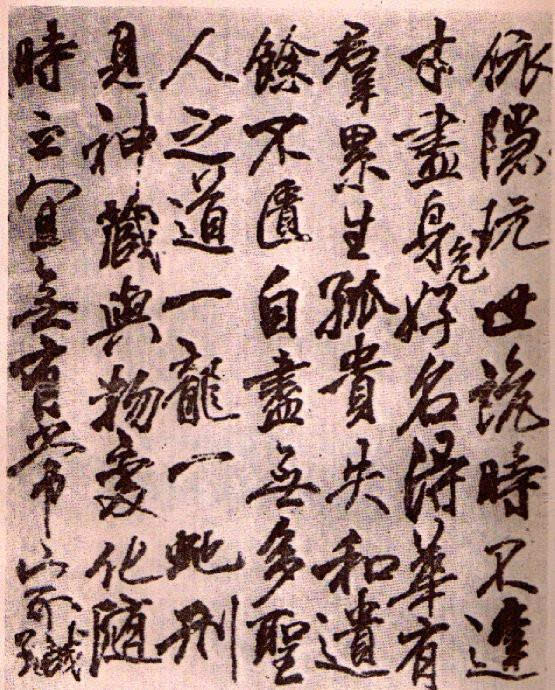 依隱玩世詭時不逢
才盡身危好名得華有
羣累生孤貴失和遺
餘不匱自盡無多聖
人之道一龍一虵刑
見神藏與物變化隨
時之宜無有常